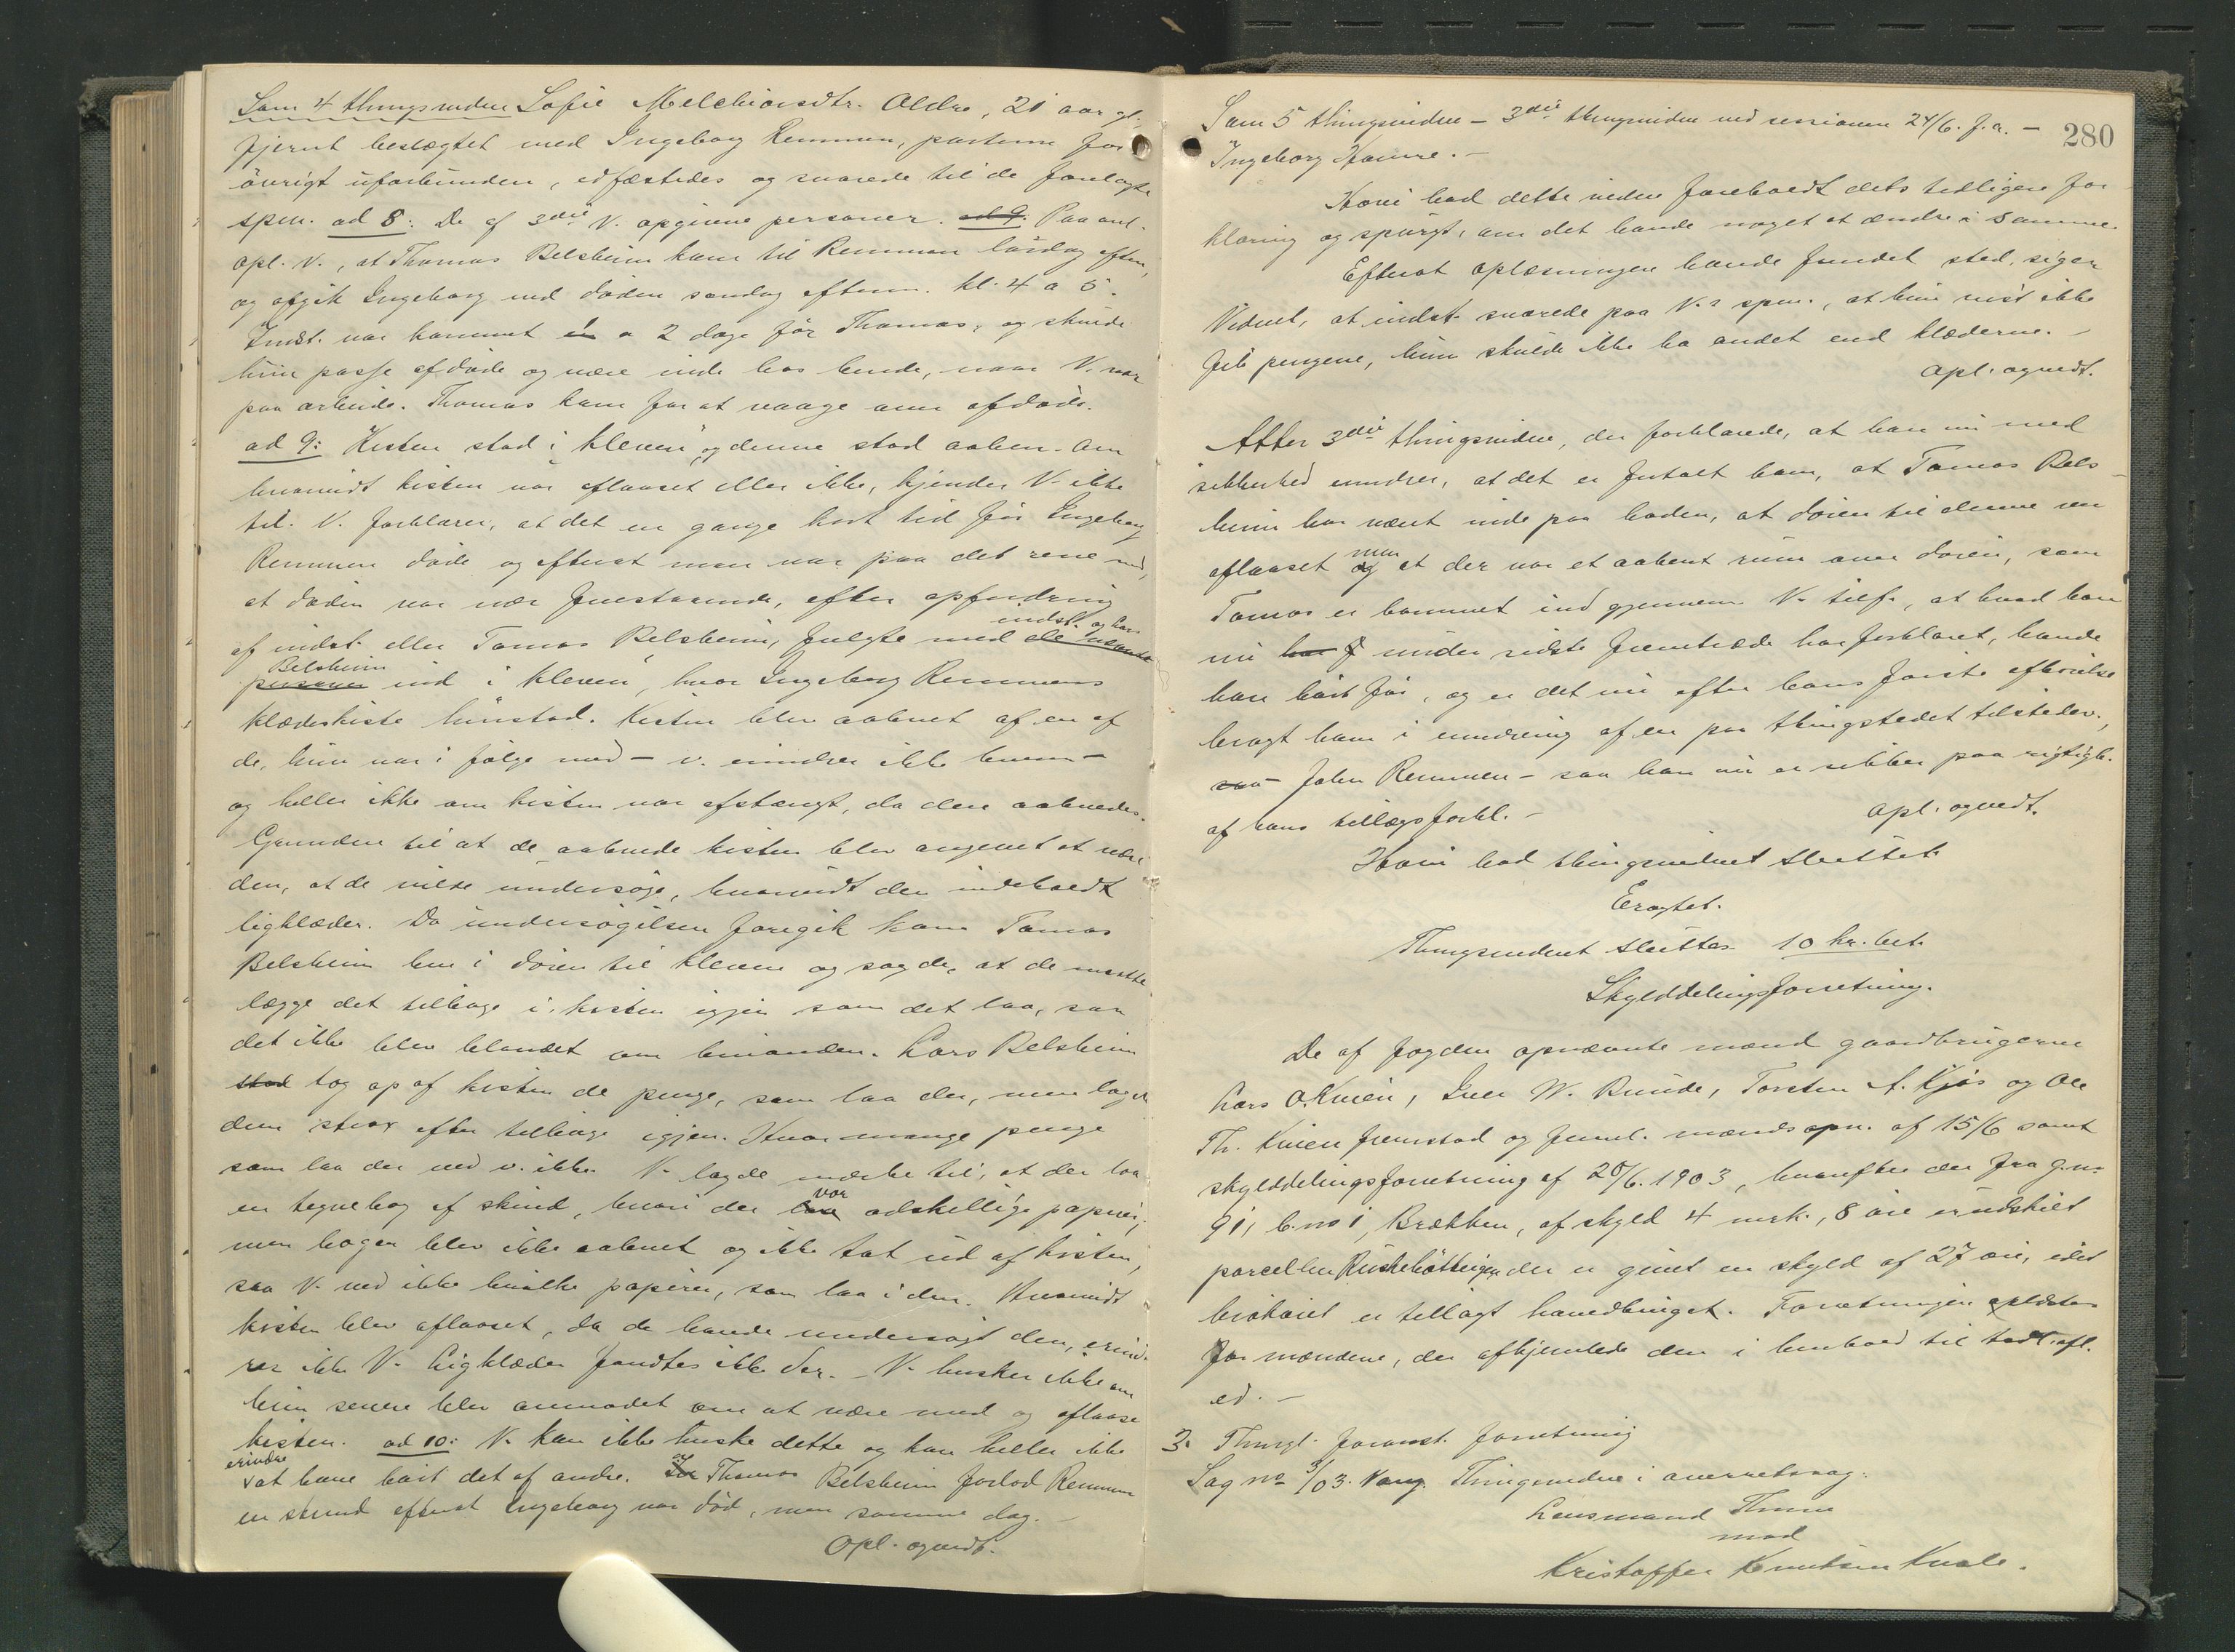 Som 4 thingsvidne Sofie Melchiorsdtr. Aldre, 21 aar gl.,
fjernt beslægtet med Ingeborg Remmen, parterne for
øvrigt uforbunden, edfæstedes og svarede til de forelagte
spm. ad 8: De af 3die V. opgivne personer. ad 9. Paa ant.
opl. V., at Thomas Belsheim kom til Remmen lørdag efterm.,
og afgik Ingeborg ved døden søndag efterm. kl. 4 a 5.
Indst. var kommet en a 2 dage før Thomas, og skulde
hun passe afdøde og være inde hos hende, naar V. var
paa arbeide. Thomas kom for at vaage over afdøde.
ad 9: Kisten stod i kleven og denne stod aaben. Om
hvorvidt kisten var aflaaset eller ikke, kjender V. ikke
til. V. forklarer, at det en gange kort tid før Ingeborg
Remmen døde og efterat man var paa det rene med,
at døden var nær forestaaende, efter opfordring
indst. og Lars
af indst. eller Tomas Belsheim, fulgte med de nævnte
Belsheim
personer ind i kleven, hvor Ingeborg Remmens
klædeskiste henstod. Kisten blev aabnet af en af
de, hun var i følge med – v. erindrer ikke hvem –
og heller ikke om kisten var afstængt, da den aabnedes.
Grunden til at de aabnede kisten blev angivet at være
den, at de vilde undersøge, hvorvidt den indeholdt
ligklæder. Da undersøgelsen foregik kom Tomas
Belsheim hen i døren til kleven og sagde, at de maatte
lægge det tilbage i kisten igjen som det laa, saa
det ikke blev blandet om hinanden. Lars Belsheim
stod tog op af kisten de penge, som laa der, men lagde
dem strax efter tilbage igjen. Hvor mange penge
som laa der ved v. ikke. V. lagde mærke til, at der laa
en tegnebog af skind, hvori der laa var adskillige papirer,
men bogen blev ikke aabnet og ikke tat ud af kisten,
saa V. ved ikke hvilke papirer, som laa i den. Hvorvidt
kisten blev aflaaset, da de havde undersøgt den, erind-
rer ikke V. Ligklæder fandtes ikke der. – V. husker ikke om
hun senere blev anmodet om at være med og aflaase
kisten. ad 10: V. kan ikke huske dette og kan heller ikke
erindre
at have hørt det af andre. Thomas Belsheim forlod Remmen
en stund efterat Ingeborg var død, men samme dag. –
Opl. ogvedt.
280
Som 5 thingsvidne – 3die thingsvidne ved sessionen 24/6. f.a. –
Ingeborg Hamre. –
Hovi bad dette vidne foreholdt dets tidligere for
klaring og spurgt, om det havde noget at ændre i samme.
Efterat oplæsningen havde fundet sted, siger
Vidnet, at indst. svarede paa V.s spm., at hun vist ikke
fik pengene, hun skulde ikke ha andet end klæderne. –
Opl. ogvedt.
Atter 3die thingsvidne, der forklarede, at han nu med
sikkerhed erindrer, at det er fortalt ham, at Tomas Bels-
heim har været inde paa boden, at døren til denne var
aflaaset og men at der var et aabent rum over døren, som
Tomas er kommet ind gjennem V. tilf., at hvad han
nu har f under sidste fremtræde har forklaret, havde
han hørt før, og er det nu efter hans første afhørelse
bragt ham i erindring af en paa thingstedet tilstedev.,
saa – John Remmen – saa han nu er sikker paa rigtigh.
af hans tillægsforkl. –
opl. ogvedt.
Hovi bad thingsvidnet sluttet.
Eragtet.
Thingsvidnet sluttes. 10 kr. bet.
Skylddelingsforretning.
De af fogden opnævnte mænd gaardbrugerne
Lars O. Kvien, Iver W. Runde, Torsten A. Kjøs og Ole
Th. Kvien fremstod og freml. mandsopn. af 15/6 samt
skylddelingsforretning af 20/6. 1903, hvorefter der fra g.no
91, b.no 1, Brækken, af skyld 4 mrk., 8 øre er udskilt
parcellen Ruskebøtteigen der er givet en skyld af 27 øre, idet
brøkøret er tillagt hovedbruget. Forretningen oplæstes
for mændene, der afhjemlede den i henhold til tidl. afl.
ed. –
3. Thingl. foranst. forretning
Sag no 3/03. Vang. Thingsvidne i overretssag.
Lensmand Thune
mod
Kristoffer Knutsen Kvale.